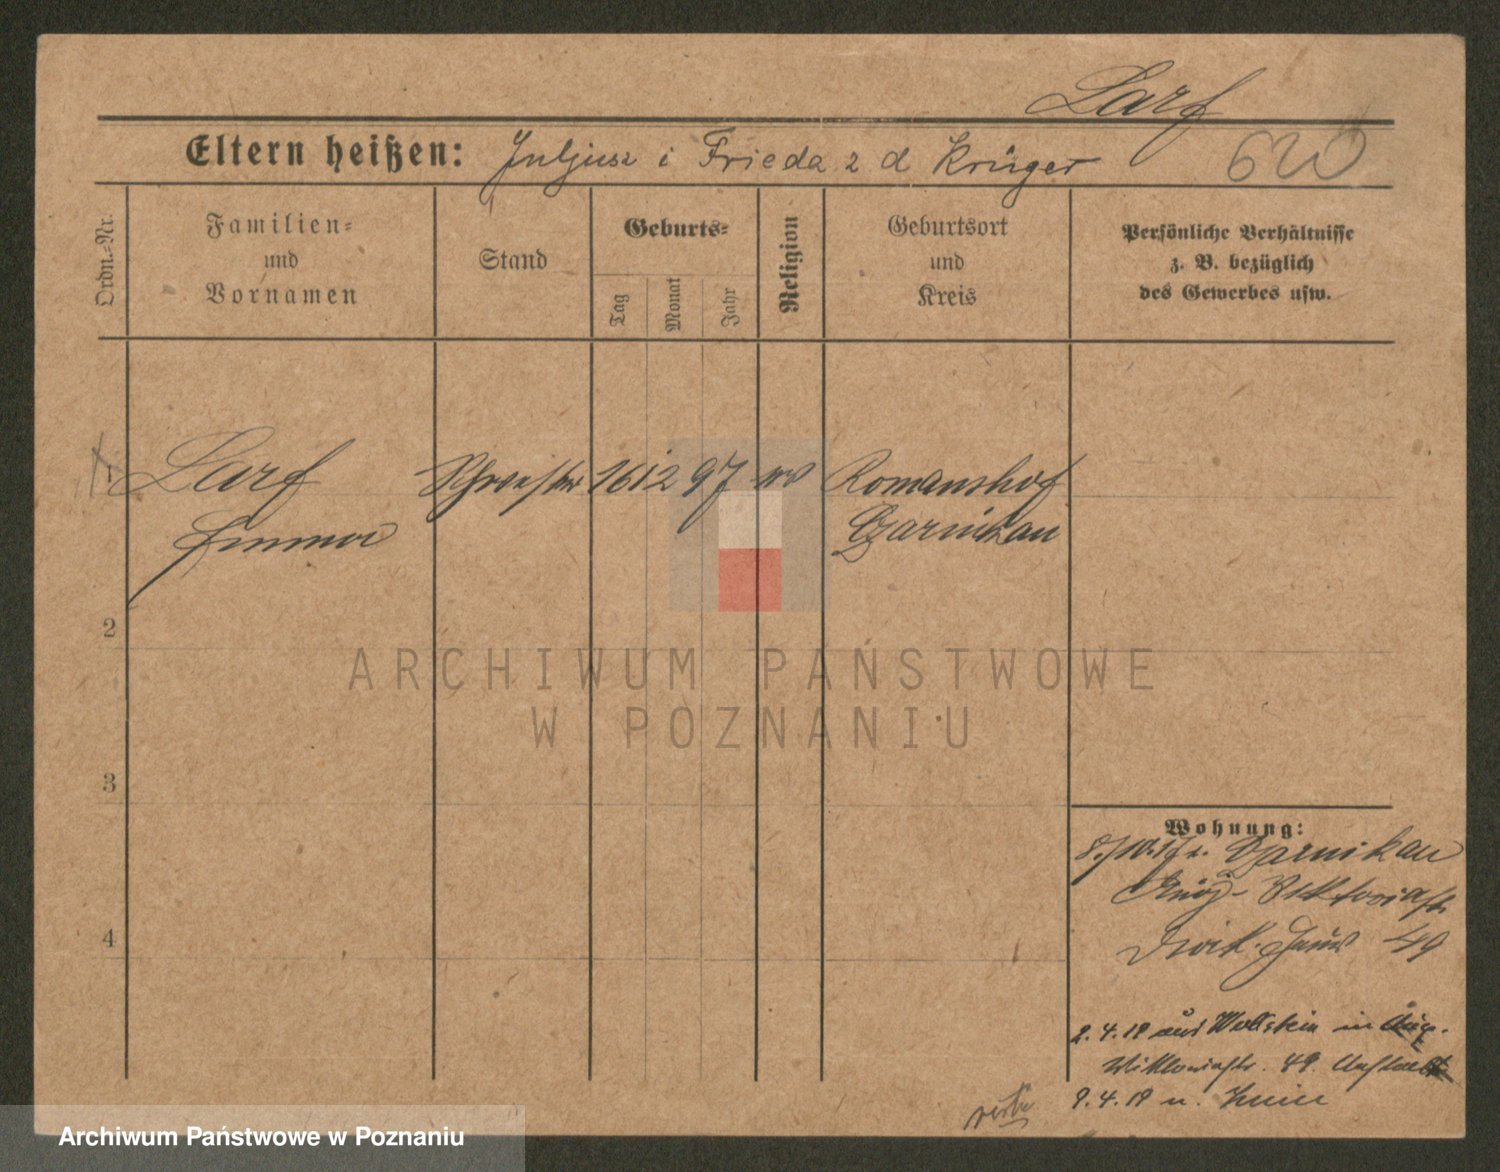 Larf
Eltern heißen: Juljusz i Frieda z d Krüger
Ordn.-Nr.
Familien-
und
Vornamen
Stand
Geburts-
Tag
Monat
Jahr
Religion
Geburtsort
und
Kreis
Persönliche Verhältnisse
z. B. bezüglich
des Gewerbes usw.
1
Larf
Emma
Schwester
16 12 97
Romanshof
Czarnikau
2
3
4
ARCHIWUM PAŃSTWOWE
W POZNANIU
Wohnung:
Czarnikau
Aug- Viktoriastr
49
2.4.19 aus Wollstein in Aug.
Viktoriastr. 49.
9.4.19 n.
Archiwum Państwowe w Poznaniu